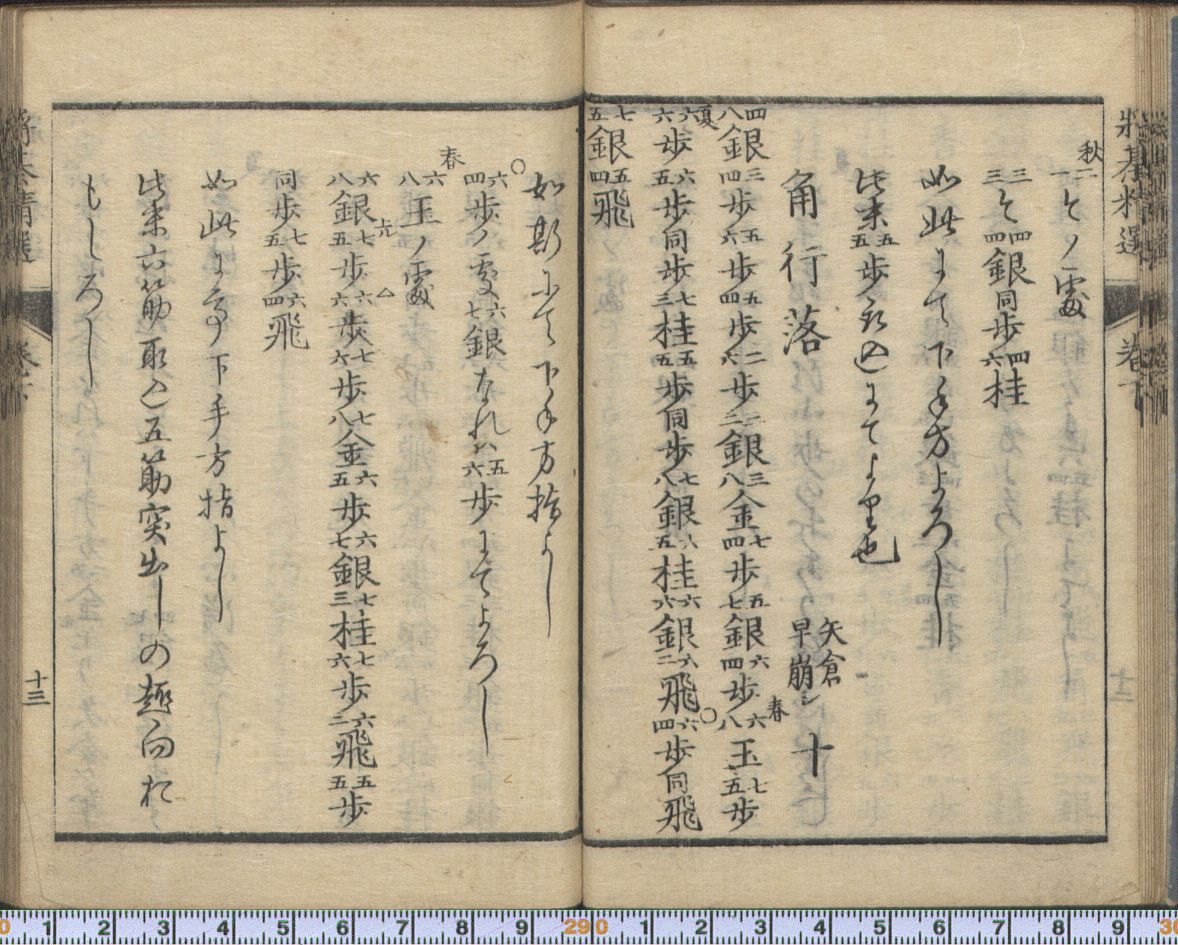 将棊精選 卷下
秋
二一とノ處
三三と四四銀同歩四六桂
如此にて下手方よろし
此末五五歩取込にてよき也
角行落 矢倉早崩シ 十
四八銀三四歩五六歩五四歩二六歩三二銀三八金七四歩五七銀六四歩春六八玉七五歩
夏六六歩六五歩同歩七三桂五五歩同歩七八銀八五桂六六銀八二飛○六四歩同飛
七五銀五四飛
如斯にて下手方指よし
春○六四歩ノ処六七銀なれハ五六歩にてよろし
六八玉ノ處
六八銀七五歩六六歩七六歩七八金六五歩六七銀七三桂七六歩六二飛五五歩
同歩七五歩六四飛
如此にて下手方指よし
此末六筋取て五筋突出しの趣向尤
もよろし
将棊精選 卷下 十三
0 1 2 3 4 5 6 7 8 9 29 0 1 2 3 4 5 6 7 8 9 30